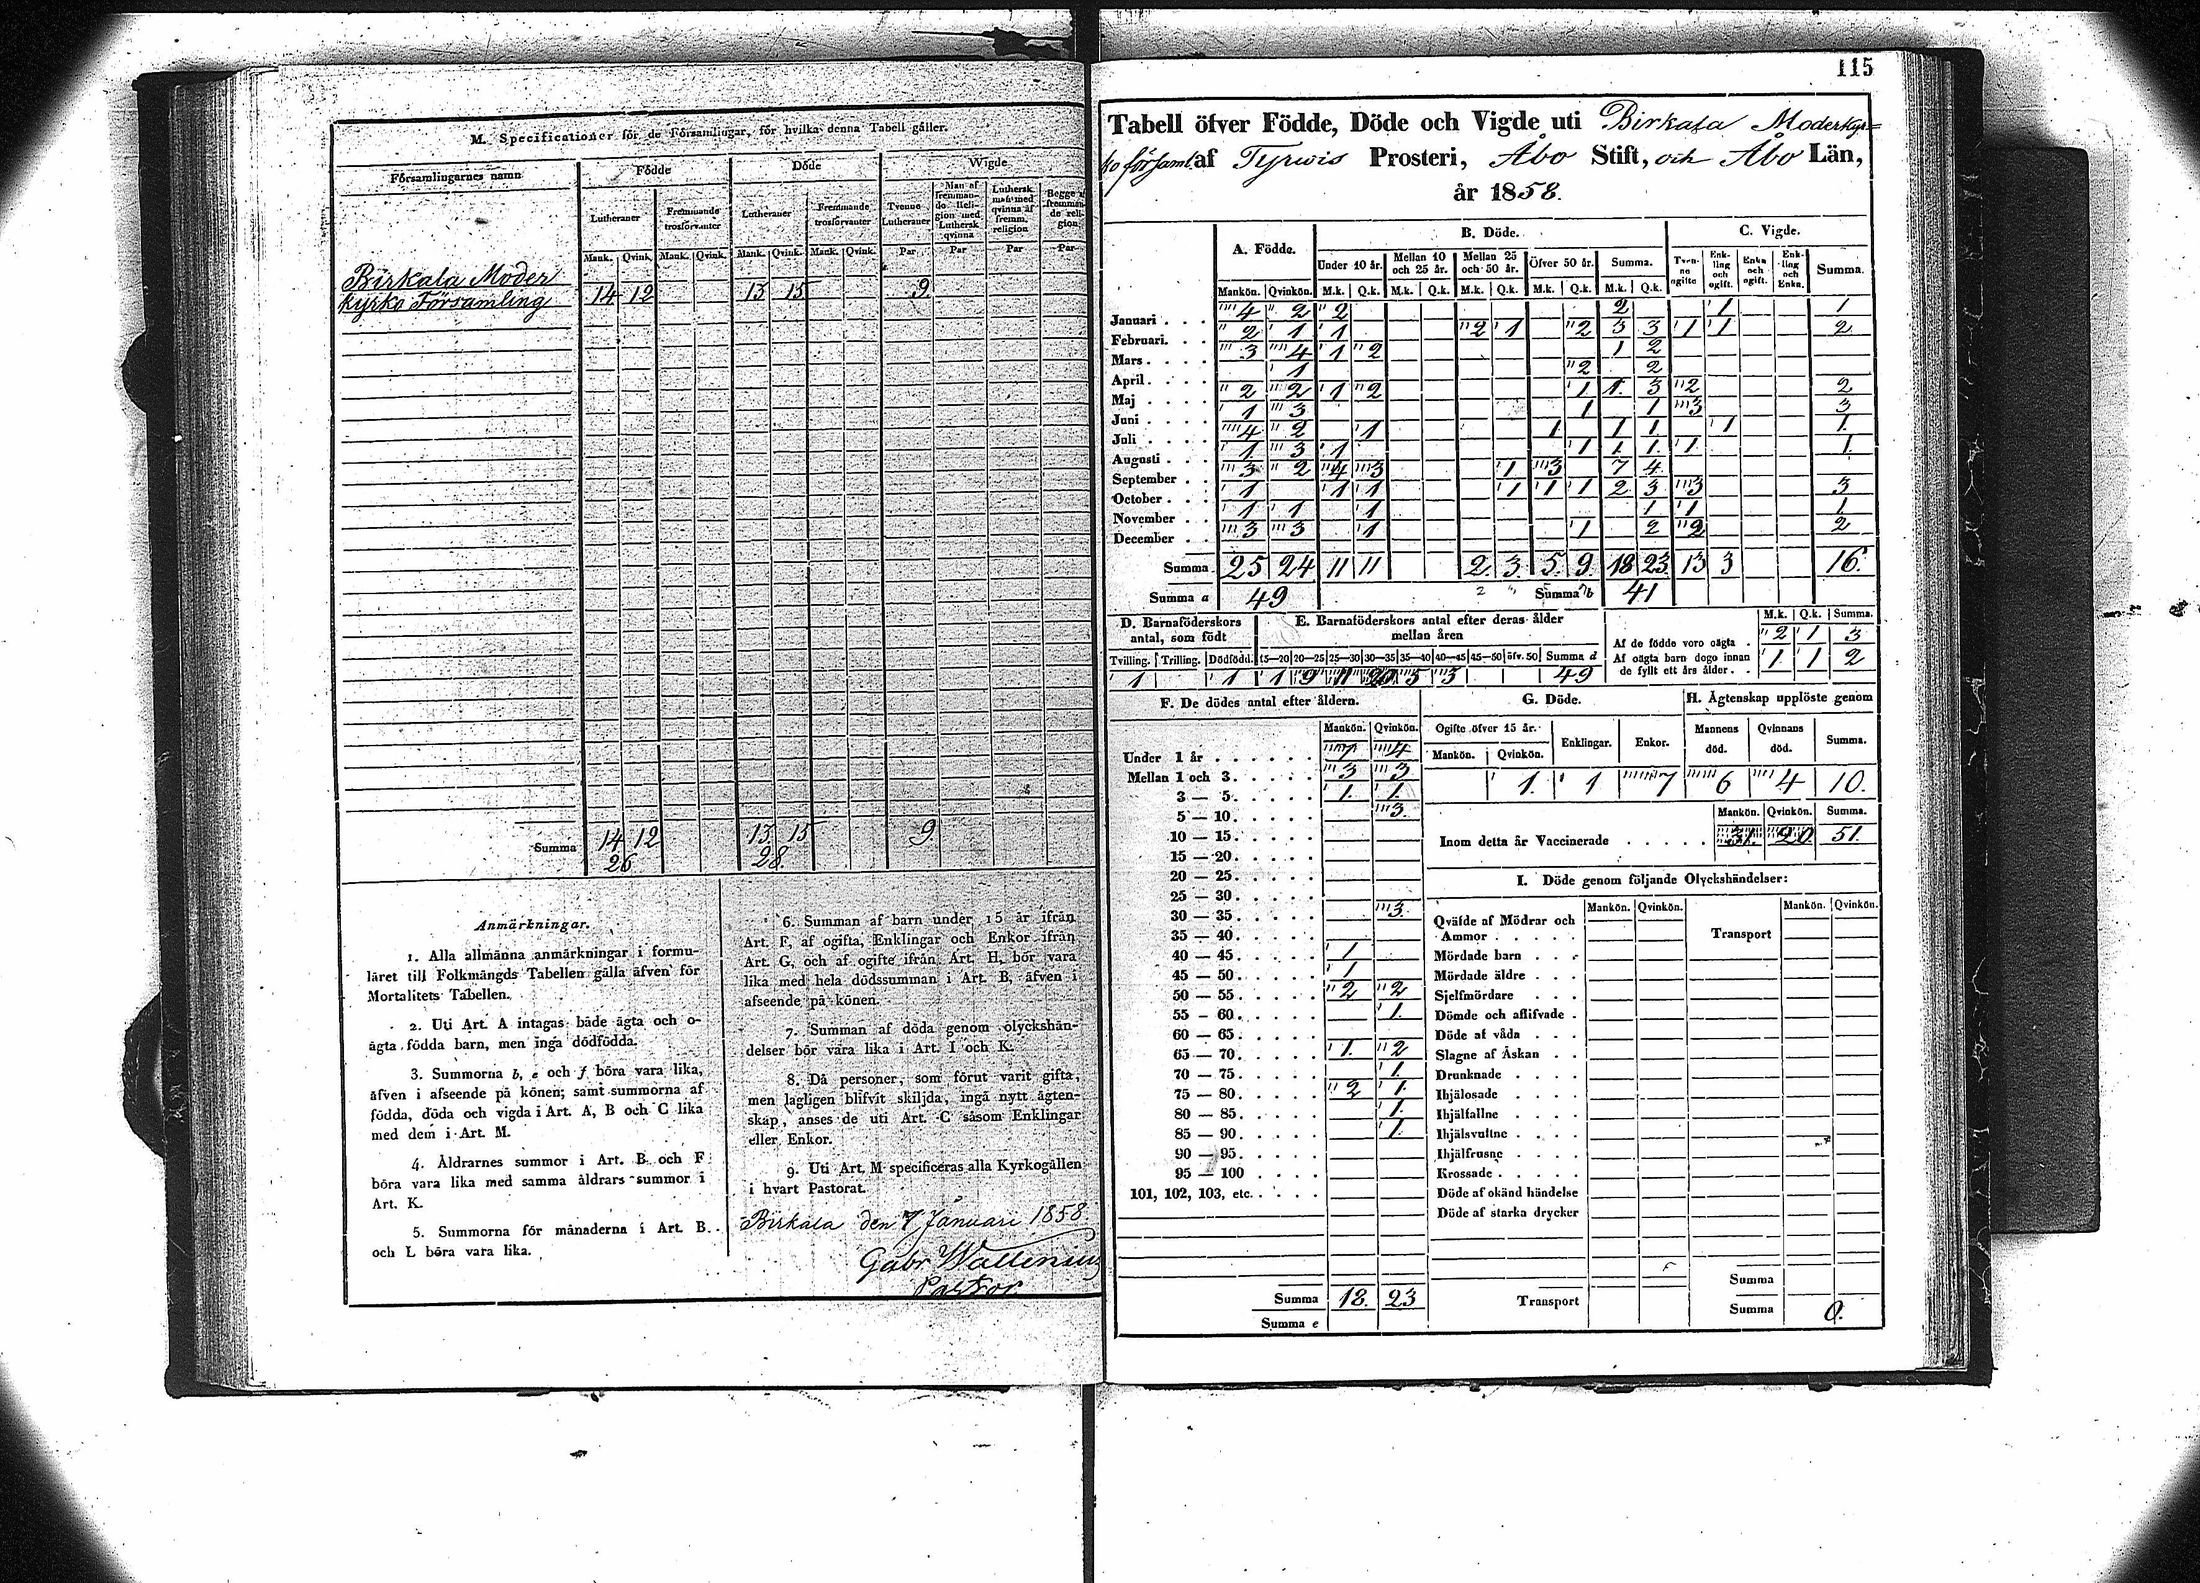 M. Specificationer för de Församlingar, för hvilka denna Tabell gäller.
Församlingarnes namn | Födde | Döde | Wigde
Lutheraner | Fremmande trosförvanter | Lutheraner | Fremmande trosförvanter | Tvenne Lutheraner | Man af fremmande Religion med Luthersk qvinna | Luthersk man med qvinna af fremm. religion | Begge af fremmande religion
Mank. | Qvink. | Mank. | Qvink. | Mank. | Qvink. | Mank. | Qvink. | Par | Par | Par | Par
Birkala Moder
kyrko Församling | 14 | 12 | 13 | 15 | 9
Summa | 14 | 12 | 13 | 15 | 9
26 | 28
Anmärkningar.
1. Alla allmänna anmärkningar i formu-
läret till Folkmängds Tabellen gälla äfven för
Mortalitets Tabellen.
2. Uti Art. A intagas både ägta och o-
ägta födda barn, men inga dödfödda.
3. Summorna b, e och f böra vara lika,
äfven i afseende på könen; samt summorna af
födda, döda och vigda i Art. A, B och C lika
med dem i Art. M.
4. Åldrarnes summor i Art. B och F
böra vara lika med samma åldrars summor i
Art. K.
5. Summorna för månaderna i Art. B.
och L böra vara lika.
6. Summan af barn under 15 år ifrån
Art. F, af ogifta, Enklingar och Enkor ifrån
Art. G, och af ogifte ifrån Art. H, bör vara
lika med hela dödssumman i Art. B, äfven i
afseende på könen.
7. Summan af döda genom olyckshän-
delser bör vara lika i Art. I och K.
8. Då personer, som förut varit gifta,
men lagligen blifvit skiljda, ingå nytt ägten-
skap, anses de uti Art. C såsom Enklingar
eller Enkor.
9. Uti Art. M specificeras alla Kyrkogällen
i hvart Pastorat.
Birkala den 7 Januari 1858
Gabr Wallenius
Pastor
115
Tabell öfver Födde, Döde och Vigde uti Birkala Moderkyr=
ko församl af Tyrwis Prosteri, Åbo Stift, och Åbo Län,
år 1858.
A. Födde. | B. Döde. | C. Vigde.
Under 10 år. | Mellan 10 och 25 år. | Mellan 25 och 50 år. | Öfver 50 år. | Summa. | Tvenne ogifte | Enkling och ogift. | Enka och ogift. | Enkling och Enka. | Summa.
Mankön. | Qvinkön. | M.k. | Q.k. | M.k. | Q.k. | M.k. | Q.k. | M.k. | Q.k. | M.k. | Q.k.
Januari | 4 | 2 | 2 | 2 | 1 | 1
Februari | 2 | 1 | 1 | 2 | 1 | 2 | 3 | 3 | 1 | 1 | 2
Mars | 3 | 4 | 1 | 2 | 1 | 2
April | 1 | 2 | 2
Maj | 2 | 2 | 1 | 2 | 1 | 1 | 3 | 2 | 2
Juni | 1 | 3 | 1 | 1 | 3 | 3
Juli | 4 | 2 | 1 | 1 | 1 | 1 | 1 | 1
Augusti | 1 | 3 | 1 | 1 | 1 | 1 | 1 | 1
September | 3 | 2 | 4 | 3 | 1 | 3 | 7 | 4
October | 1 | 1 | 1 | 1 | 1 | 1 | 2 | 3 | 3 | 3
November | 1 | 1 | 1 | 1 | 1 | 1
December | 3 | 3 | 1 | 1 | 2 | 2 | 2
Summa | 25 | 24 | 11 | 11 | 2 | 3 | 5 | 9 | 18 | 23 | 13 | 3 | 16
Summa a | 49 | Summa b | 41
D. Barnaföderskors antal, som födt | E. Barnaföderskors antal efter deras ålder mellan åren | M.k. | Q.k. | Summa.
Tvilling. | Trilling. | Dödfödd. | 15—20 | 20—25 | 25—30 | 30—35 | 35—40 | 40—45 | 45—50 | öfv. 50 | Summa d
1 | 1 | 1 | 9 | 11 | 20 | 5 | 3 | 49
Af de födde voro oägta | 2 | 1 | 3
Af oägta barn dogo innan de fyllt ett års ålder | 1 | 1 | 2
F. De dödes antal efter åldern. | G. Döde. | H. Ägtenskap upplöste genom
Mankön. | Qvinkön.
Under 1 år | 7 | 4
Mellan 1 och 3 | 3 | 3
3 — 5 | 1 | 1
5 — 10 | 3
10 — 15
15 — 20
20 — 25
25 — 30
30 — 35 | 3
35 — 40
40 — 45 | 1
45 — 50 | 1
50 — 55 | 2 | 2
55 — 60 | 1
60 — 65
65 — 70 | 1 | 2
70 — 75 | 1
75 — 80 | 2 | 1
80 — 85 | 1
85 — 90 | 1
90 — 95
95 — 100
101, 102, 103, etc.
Summa | 18 | 23
Summa e
Ogifte öfver 15 år. | Enklingar. | Enkor. | Mannens död. | Qvinnans död. | Summa.
Mankön. | Qvinkön.
1 | 1 | 7 | 6 | 4 | 10
Mankön. | Qvinkön. | Summa.
Inom detta år Vaccinerade | 31 | 20 | 51
I. Döde genom följande Olyckshändelser:
Mankön. | Qvinkön. | Mankön. | Qvinkön.
Qväfde af Mödrar och
Ammor | Transport
Mördade barn
Mördade äldre
Sjelfmördare
Dömde och aflifvade
Döde af våda
Slagne af Åskan
Drunknade
Ihjälosade
Ihjälfallne
Ihjälsvultne
Ihjälfrusne
Krossade
Döde af okänd händelse
Döde af starka drycker
Summa
Transport | Summa | 0